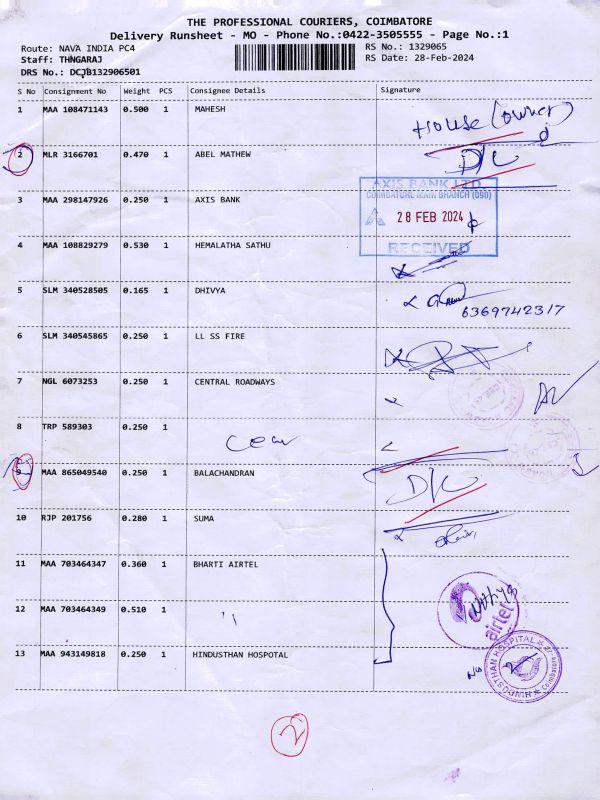 THE PROFESSIONAL COURIERS, COIMBATORE
Delivery Runsheet - MO - Phone No.:0422-3505555 - Page No.:1
Route: NAVA INDIA PC4
RS No.: 1329065
Staff: THNGARAJ
RS Date: 28-Feb-2024
DRS No.: DCJB132906501
S No Consignment No Weight PCS Consignee Details Signature
1 MAA 108471143 0.500 1 MAHESH
House (owner)
2 MLR 3166701 0.470 1 ABEL MATHEW D/C
3 MAA 298147926 0.250 1 AXIS BANK
AXIS BANK LTD.
COIMBATORE MAIN BRANCH (090)
28 FEB 2024
RECEIVED
4 MAA 108829279 0.530 1 HEMALATHA SATHU
5 SLM 340528505 0.165 1 DHIVYA
6369742317
6 SLM 340545865 0.250 1 LL SS FIRE
7 NGL 6073253 0.250 1 CENTRAL ROADWAYS
8 TRP 589303 0.250 1
9 MAA 865049540 0.250 1 BALACHANDRAN D/C
10 RJP 201756 0.280 1 SUMA
11 MAA 703464347 0.360 1 BHARTI AIRTEL
airtel
12 MAA 703464349 0.510 1 "
13 MAA 943149818 0.250 1 HINDUSTHAN HOSPOTAL
HINDUSTHAN HOSPITAL
Coimbatore
2